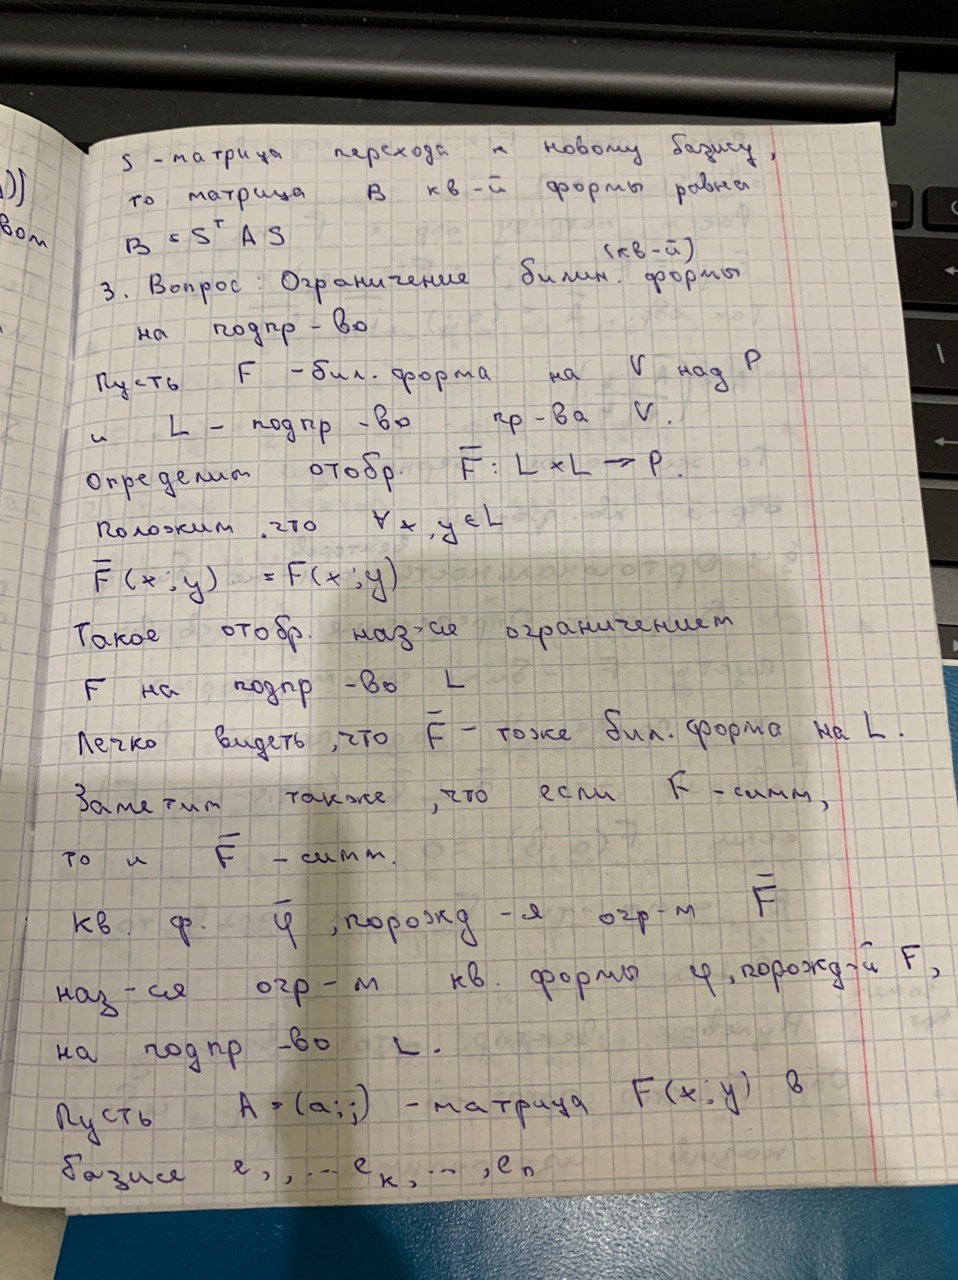 ))
вом
S - матрица перехода к новому базису,
то матрица B кв-й формы равна
B = Sᵀ A S
3. Вопрос: Ограничение билин. (кв-й) формы
на подпр-во
Пусть F - бил. форма на V над P
и L - подпр-во пр-ва V.
Определим отобр. F̅ : L × L → P.
Положим, что ∀ x, y ∈ L
F̅(x; y) = F(x; y)
Такое отобр. наз-ся ограничением
F на подпр-во L
Легко видеть, что F̅ - тоже бил. форма на L.
Заметим также, что если F - симм,
то и F̅ - симм.
кв. ф. φ̅, порожд-я огр-м F̅
наз-ся огр-м кв. формы φ, порожд-й F,
на подпр-во L.
Пусть A = (aᵢⱼ) - матрица F(x; y) в
базисе e₁, ... eₖ, ..., eₙ